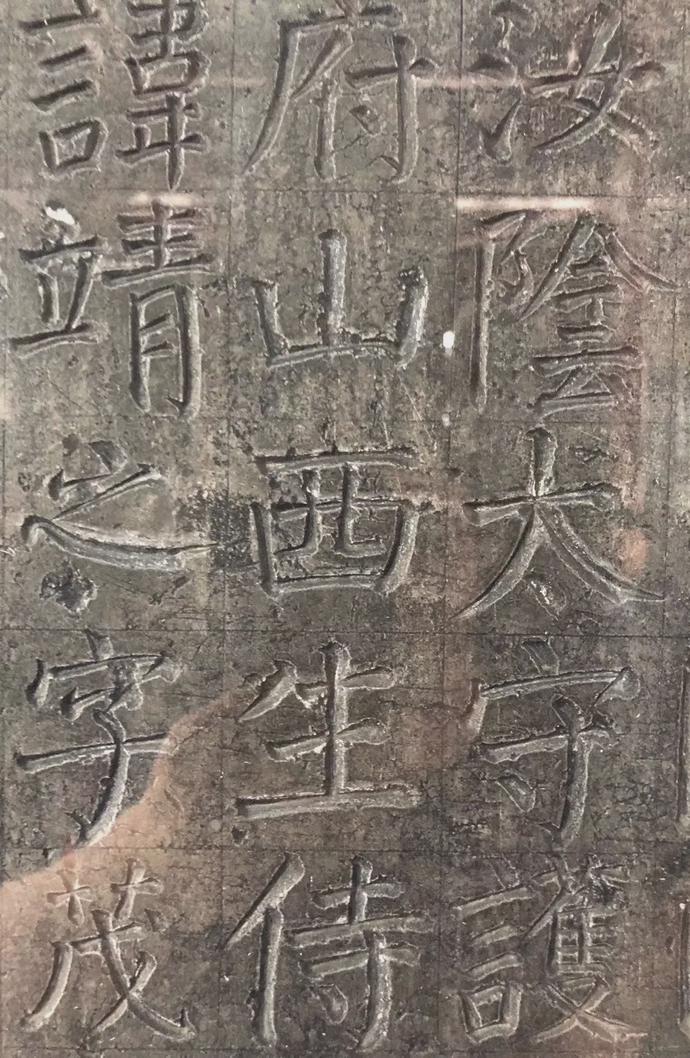 汝陰太守護
府山西生侍
諱靖之字茂